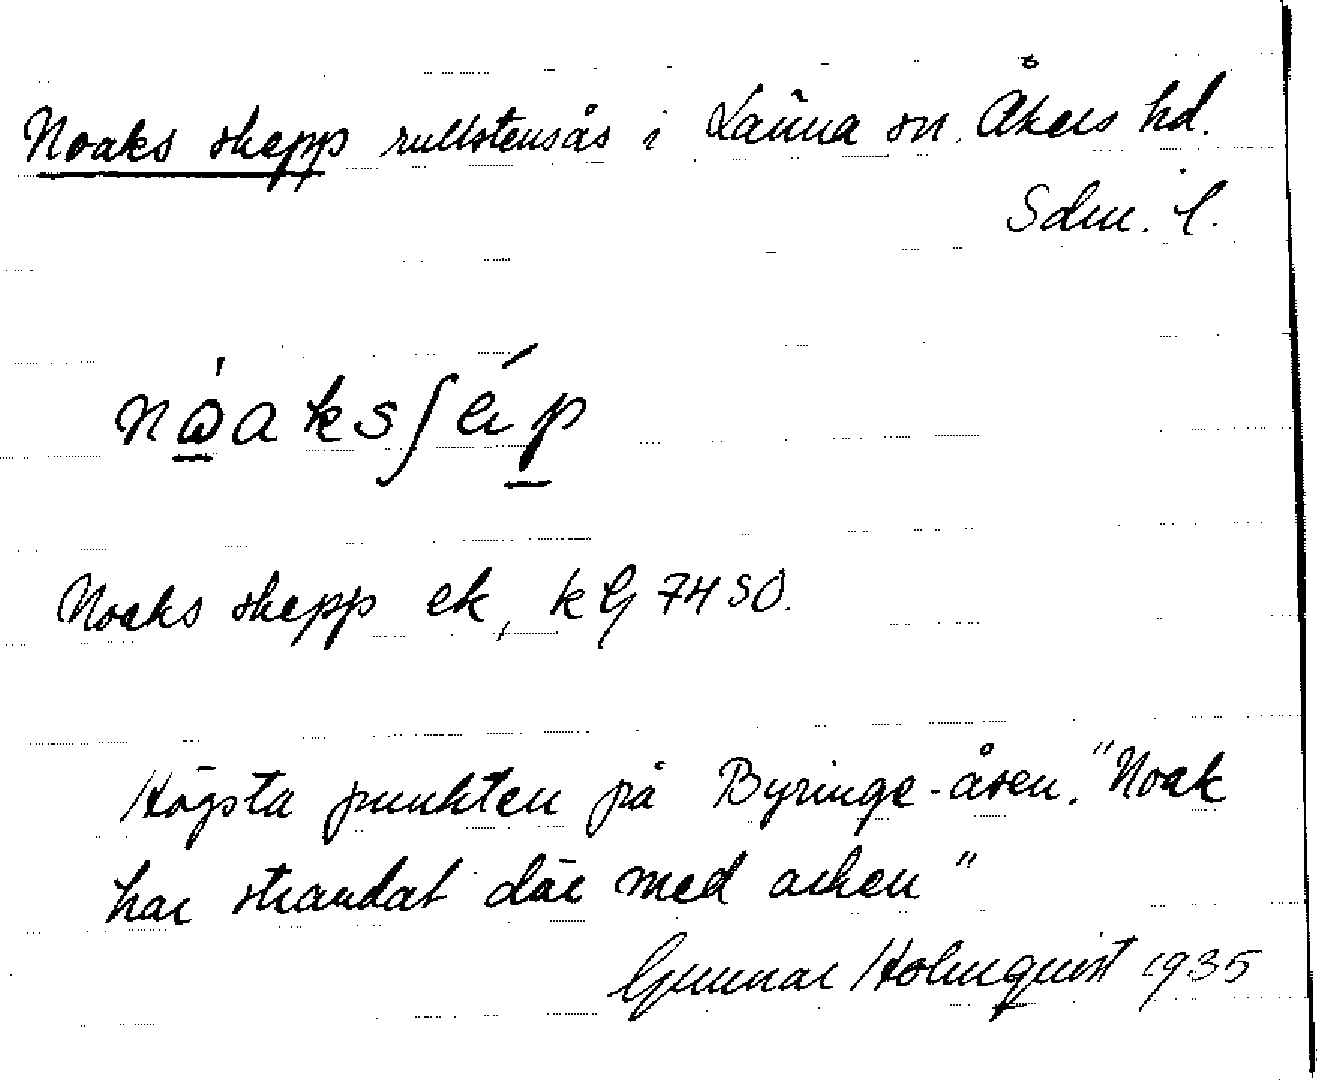 Noaks skepp rullstensås i Länna sn. Åkers hd.
Sdm. l.
Noaks skepp ek, kG 7450.
Högsta punkten på Byringe-åsen. "Noak
har strandat där med arken"
Gunnar Holmquist 1935